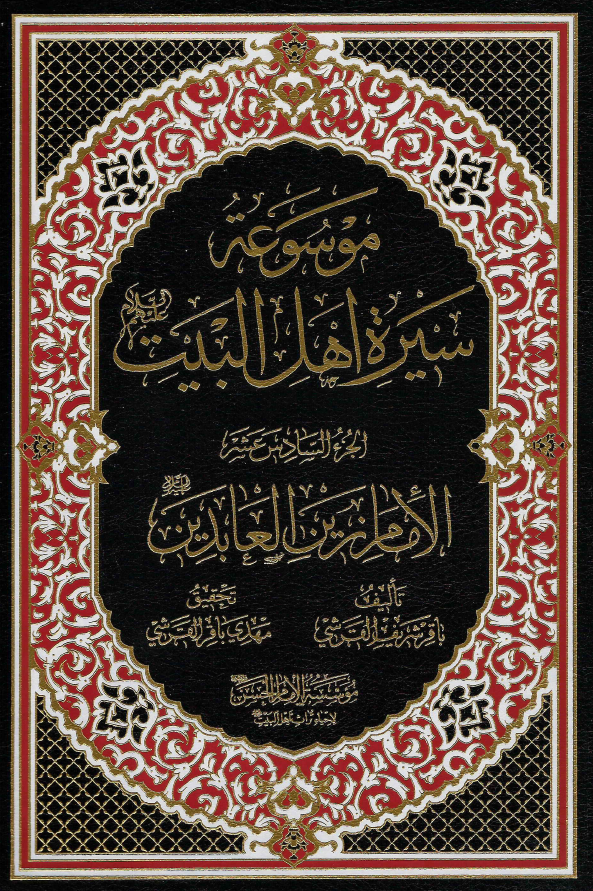 موسوعة
سيرة أهل البيت عليهم السلام
الجزء السادس عشر
الإمام زين العابدين
تأليف
باقر شريف القرشي
تحقيق
مهدي باقر القرشي
مؤسسة الإمام الحسن
لإحياء تراث أهل البيت